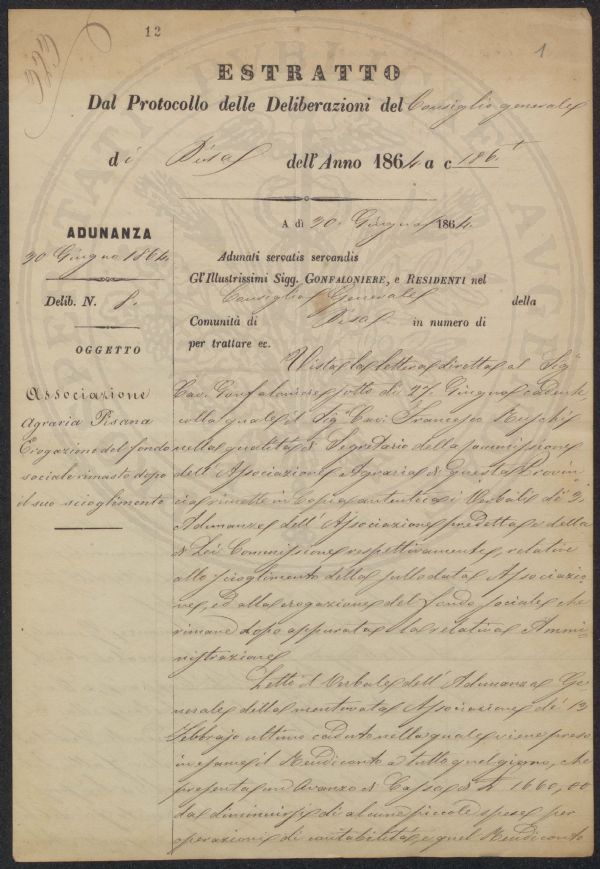 323
12
1
ESTRATTO
Dal Protocollo delle Deliberazioni del Consiglio generale
di Pisa dell'Anno 1864 a c 186t
ADUNANZA
30 Giugno 1864
Delib. N. 8.
OGGETTO
Associazione
Agraria Pisana
Erogazione del fondo
sociale rimasto dopo
il suo scioglimento
A dì 30. Giugno 1864.
Adunati servatis servandis
Gl'Illustrissimi Sigg. GONFALONIERE, e RESIDENTI nel
Consiglio Generale della
Comunità di Pisa in numero di
per trattare ec.
Vista la lettera diretta al Sigr
Cav. Gonfaloniere sotto di 27. Giugno cadente
colla quale il Sigr Cav. Francesco Ruschi
nella qualità di Segretario della Commissione
dell'Associazione Agraria di questa Provin
cia rimette in copia autentica i Verbali di 2.
Adunanze dell'Associazione predetta e della
di Lei Commissione respettivamente, relative
allo scioglimento della sullodata Associazio
ne, ed alla erogazione del fondo sociale che
rimane dopo appurata la relativa Ammi
nistrazione
Letto il Verbale dell'Adunanza Ge
nerale della mentovata Associazione di 13
Febbrajo ultimo caduto nella quale viene preso
in esame il Rendiconto a tutto quel giorno, che
presenta un Avanzo di Cassa di 1660,00
da diminuirsi di alcune piccole spese per
operazioni di contabilità, e quel Rendiconto